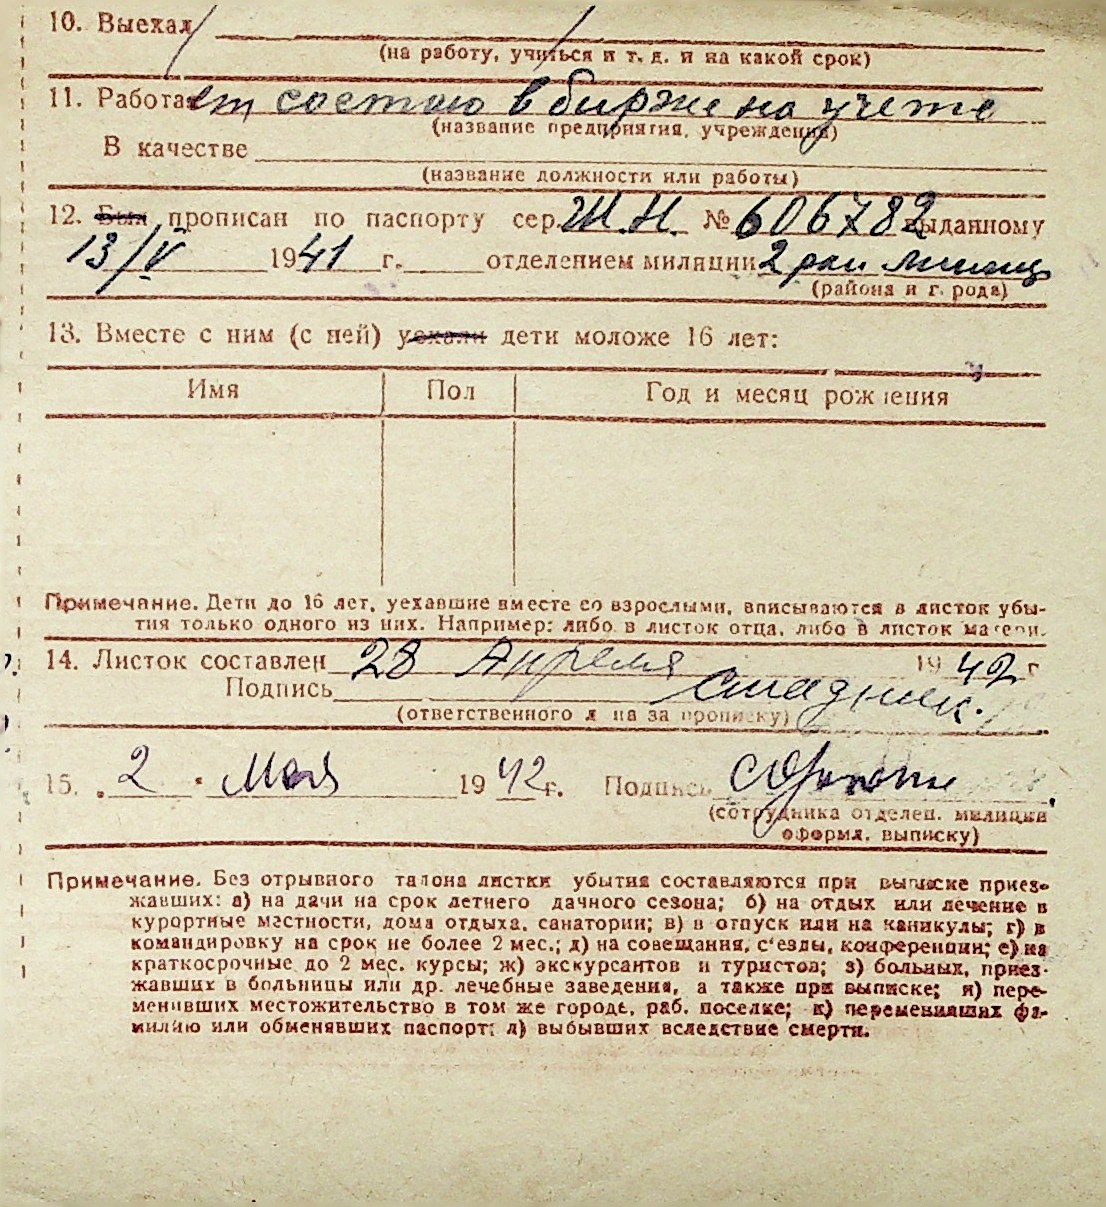 10. Выехал
(на работу, учиться и т. д. и на какой срок)
11. Работает состою в бирже на учете
(название предприятия, учреждения)
В качестве
(название должности или работы)
12. Был прописан по паспорту сер. Ш.Н. № 606782 выданному
13/V 1941 г. отделением милиции 2 рай милиц
(района и города)
13. Вместе с ним (с ней) уехали дети моложе 16 лет:
Имя Пол Год и месяц рождения
Примечание. Дети до 16 лет, уехавшие вместе со взрослыми, вписываются в листок убы-
тия только одного из них. Например: либо в листок отца, либо в листок матери.
14. Листок составлен 28 Апреля 1942 г
Подпись
(ответственного лица за прописку)
15. 2 Мая 1942 г. Подпись
(сотрудника отделен. милиции
оформл. выписку)
Примечание. Без отрывного талона листки убытия составляются при выписке приез-
жавших: а) на дачи на срок летнего дачного сезона; б) на отдых или лечение в
курортные местности, дома отдыха, санатории; в) в отпуск или на каникулы; г) в
командировку на срок не более 2 мес.; д) на совещания, с'езды, конференции; е) на
краткосрочные до 2 мес. курсы; ж) экскурсантов и туристов; з) больных, приез-
жавших в больницы или др. лечебные заведения, а также при выписке; и) пере-
менивших местожительство в том же городе, раб. поселке; к) переменивших фа-
милию или обменявших паспорт; л) выбывших вследствие смерти.